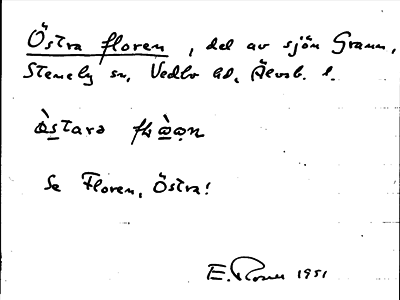 Östra floren, del av sjön Grann,
Steneby sn, Vedbo hd, Älvsb. l.
Se Floren, Östra!
E. Rosen 1951